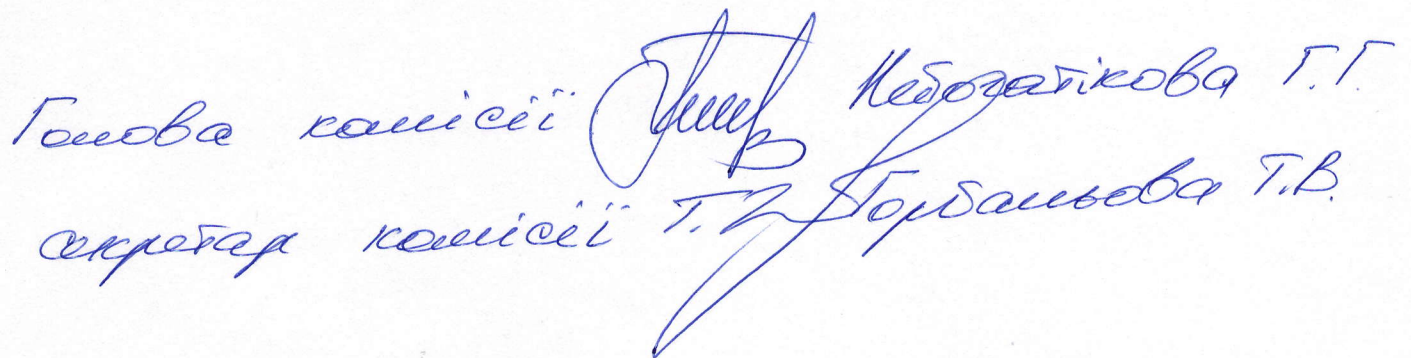 Голова комісії Небогатікова Г.Г.
секретар комісії Горбаньова Т.В.